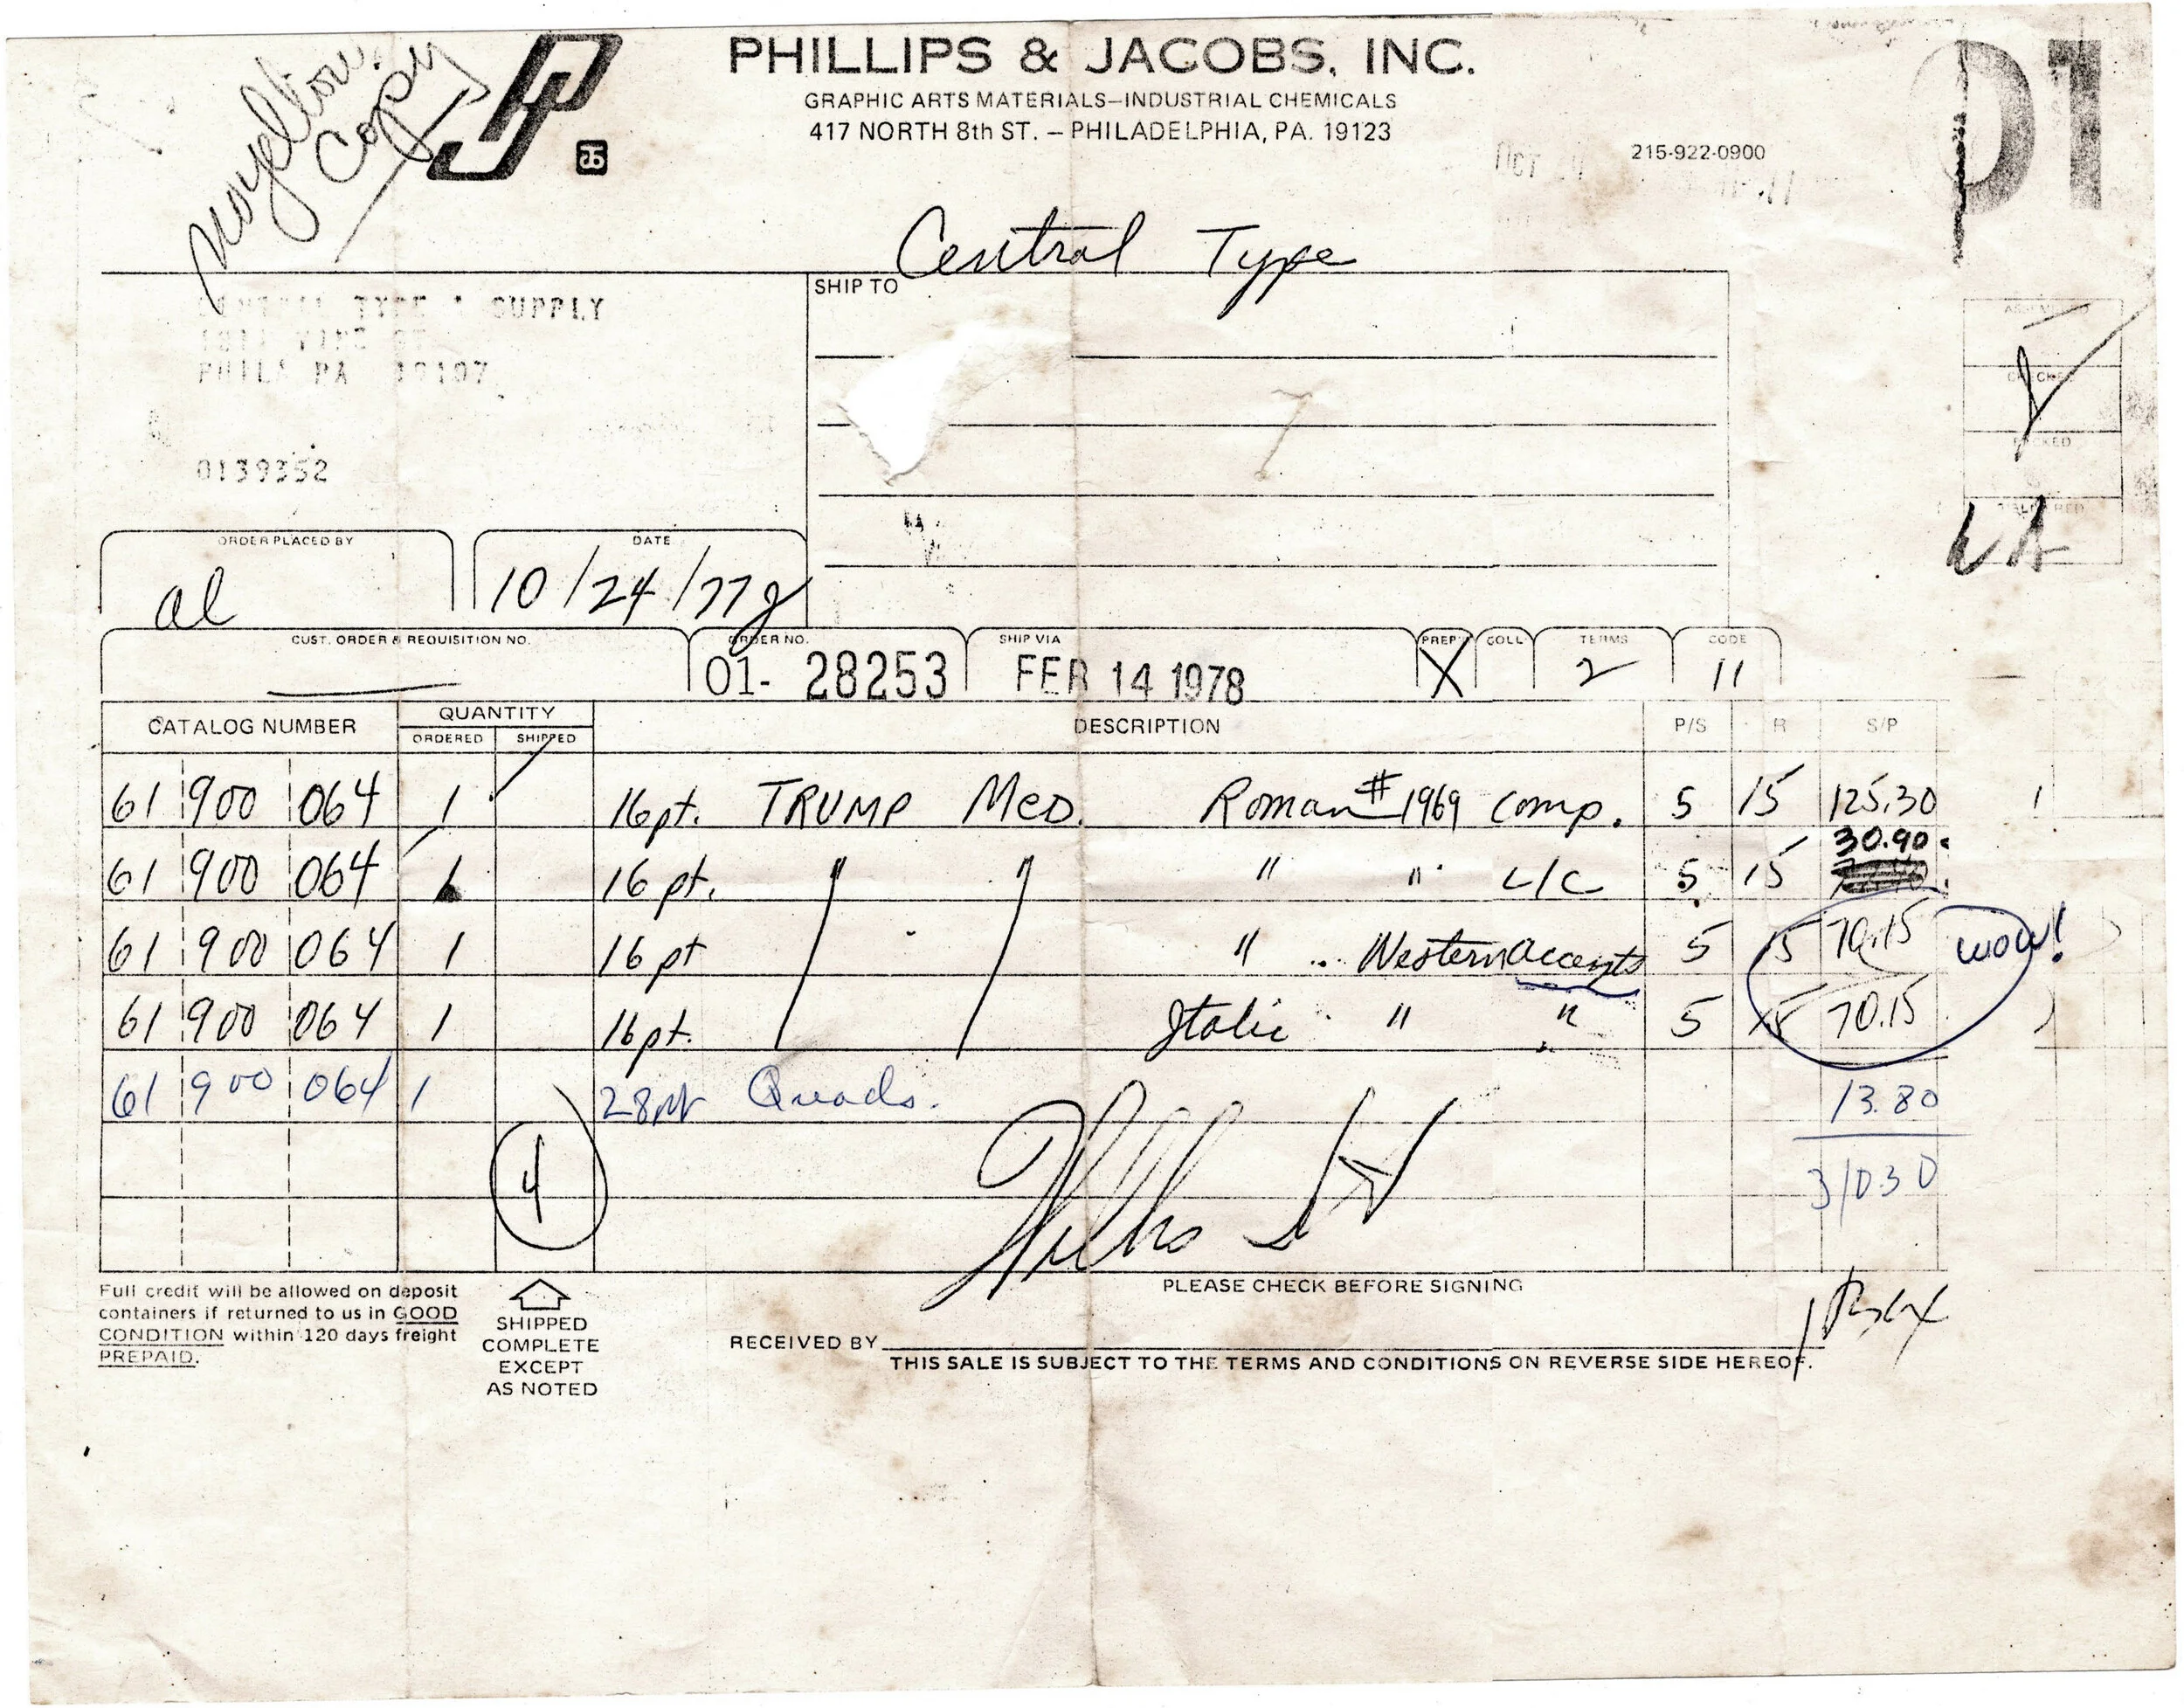 Copy
PHILLIPS & JACOBS, INC.
GRAPHIC ARTS MATERIALS—INDUSTRIAL CHEMICALS
417 NORTH 8th ST. — PHILADELPHIA, PA. 19123
OCT
215-922-0900
01
Central Type
SHIP TO
TYPE & SUPPLY
PHILA PA 19107
0139352
CHECKED
PACKED
LA
ORDER PLACED BY
al
DATE
10/24/77
CUST. ORDER & REQUISITION NO.
ORDER NO.
01- 28253
SHIP VIA
FEB 14 1978
PREP
X
COLL
TERMS
2
CODE
11
CATALOG NUMBER
QUANTITY
ORDERED
SHIPPED
DESCRIPTION
P/S
R
S/P
61 900 064 1 16pt. TRUMP MED. Roman #1969 comp. 5 15 125.30
61 900 064 1 16pt. " " " " L/C 5 15 30.90
61 900 064 1 16pt " Western accents 5 15 70.15 wow!
61 900 064 1 16pt. Italic " " 5 15 70.15
61 900 064 1 28pt Quads. 13.80
4
310 30
Full credit will be allowed on deposit
containers if returned to us in GOOD
CONDITION within 120 days freight
PREPAID.
SHIPPED
COMPLETE
EXCEPT
AS NOTED
PLEASE CHECK BEFORE SIGNING
RECEIVED BY
THIS SALE IS SUBJECT TO THE TERMS AND CONDITIONS ON REVERSE SIDE HEREOF.